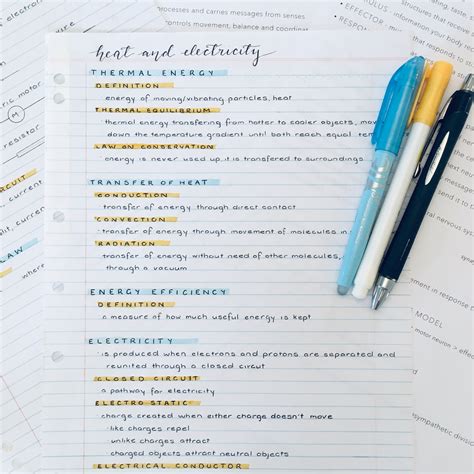 heat and electricity
THERMAL ENERGY
DEFINITION
energy of moving/vibrating particles, heat
THERMAL EQUILIBRIUM
thermal energy transferring from hotter to cooler objects, mov
down the temperature gradient until both reach equal tem
LAW ON CONSERVATION
energy is never used up, it is transfered to surroundings
TRANSFER OF HEAT
CONDUCTION
transfer of energy through direct contact
CONVECTION
transfer of energy through movement of molecules in
RADIATION
transfer of energy without need of other molecules,
through a vacuum
ENERGY EFFICIENCY
DEFINITION
a measure of how much useful energy is kept
ELECTRICITY
is produced when electrons and protons are separated and
reunited through a closed circuit
CLOSED CIRCUIT
a pathway for electricity
ELECTRO STATIC
charge created when either charge doesn't move
like charges repel
unlike charges attract
charged objects attract neutral objects
ELECTRICAL CONDUCTOR
processes and carries messages from senses
controls movement, balance and coordinat
electrical
tric motor
M
resistor
RCUIT
current
LAW
where
STIMULUS
RECEPTOR
EFFECTOR
information
responds
your body
MODEL
motor neuron → effect
sympathetic division